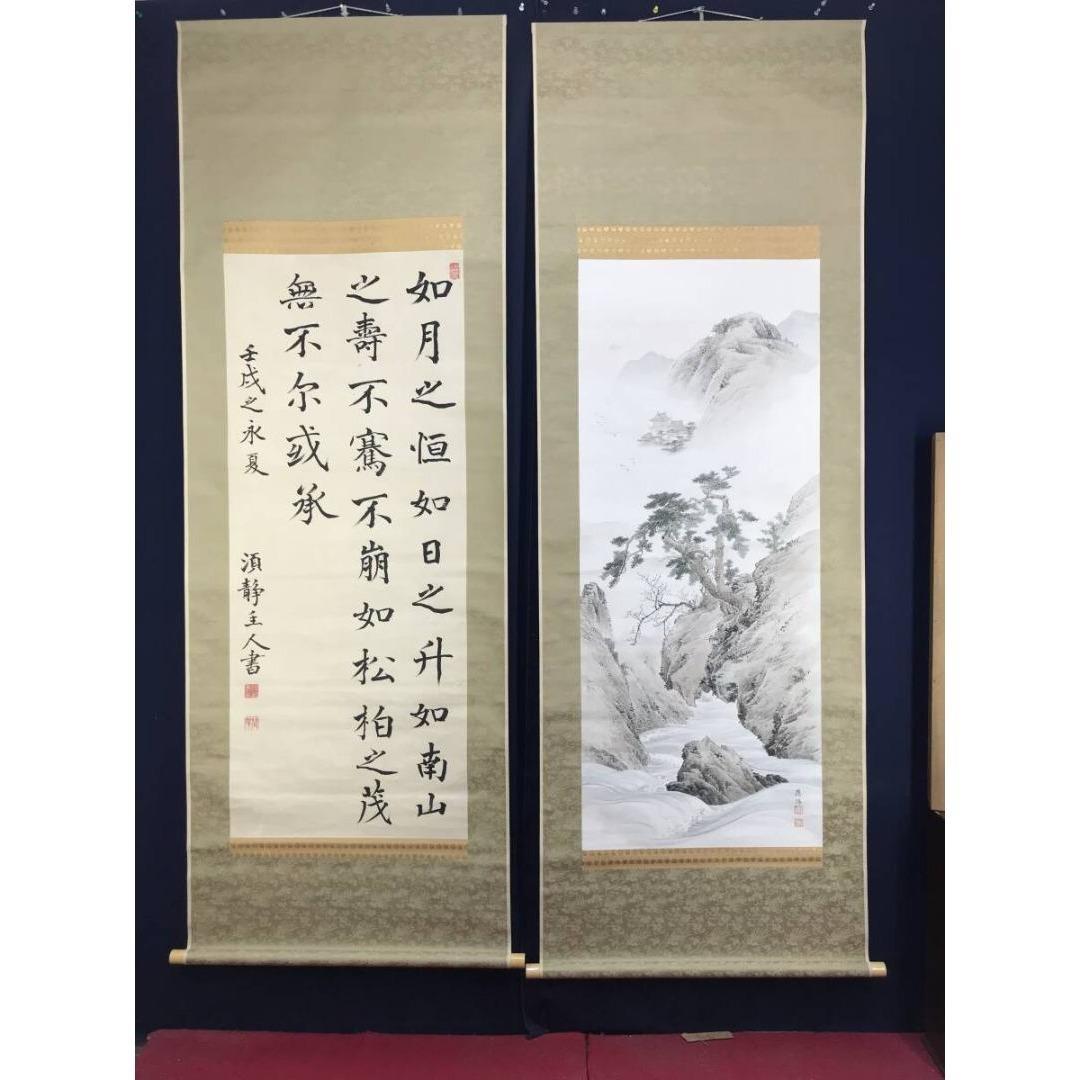 如月之恒如日之升如南山
之壽不騫不崩如松柏之茂
無不尔或承
壬戌之永夏
須静主人書